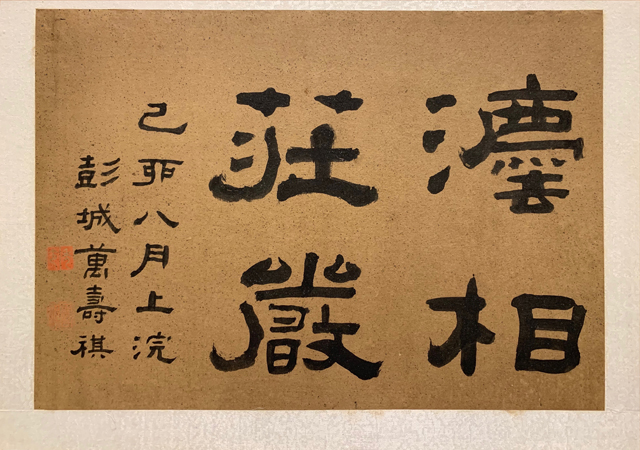 灋相
莊嚴
己卯八月上浣
彭城萬壽祺